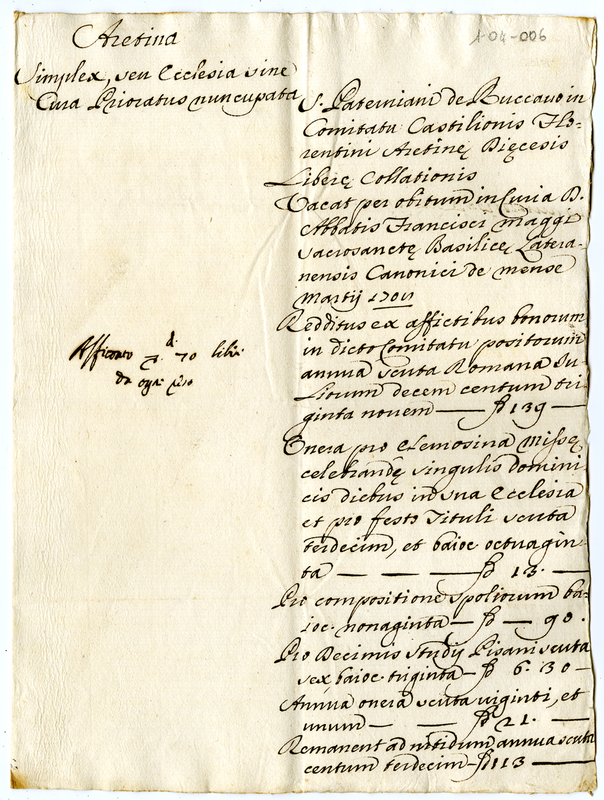 Aretina
1-04-006
Simplex, seu Ecclesia sine
Cura Prioratus nuncupata
S. Paterniani de Buccavo in
Comitatu Castilionis Flo=
rentini Aretinę Dięcesis
Liberę Collationis
Vacat per obitum in Curia B.
Abbatis Francisci Maggi
sacrosanctę Basilicę Latera-
nensis Canonici de mense
Martij 1701
Redditus ex affictibus bonorum
in dicto Comitatu positorum
annua scuta Romana Ju-
liorum decem centum tri-
ginta novem — 139 —
Onera pro elemosina Missę
celebrandę singulis domini
cis diebus in sua Ecclesia
et pro festo Tituli scuta
terdecim, et baioc octuagin-
ta — — — 13. —
Pro compositione spoliorum ba-
ioc. nonaginta — — 90.
Pro Decimis Studij Pisani scuta
sex, baioc triginta — 6. 30 —
Annua onera scuta viginti, et
unum — — 21. —
Remanent ad nitidum annua scuta
centum terdecim — 113 —
70
da ogni